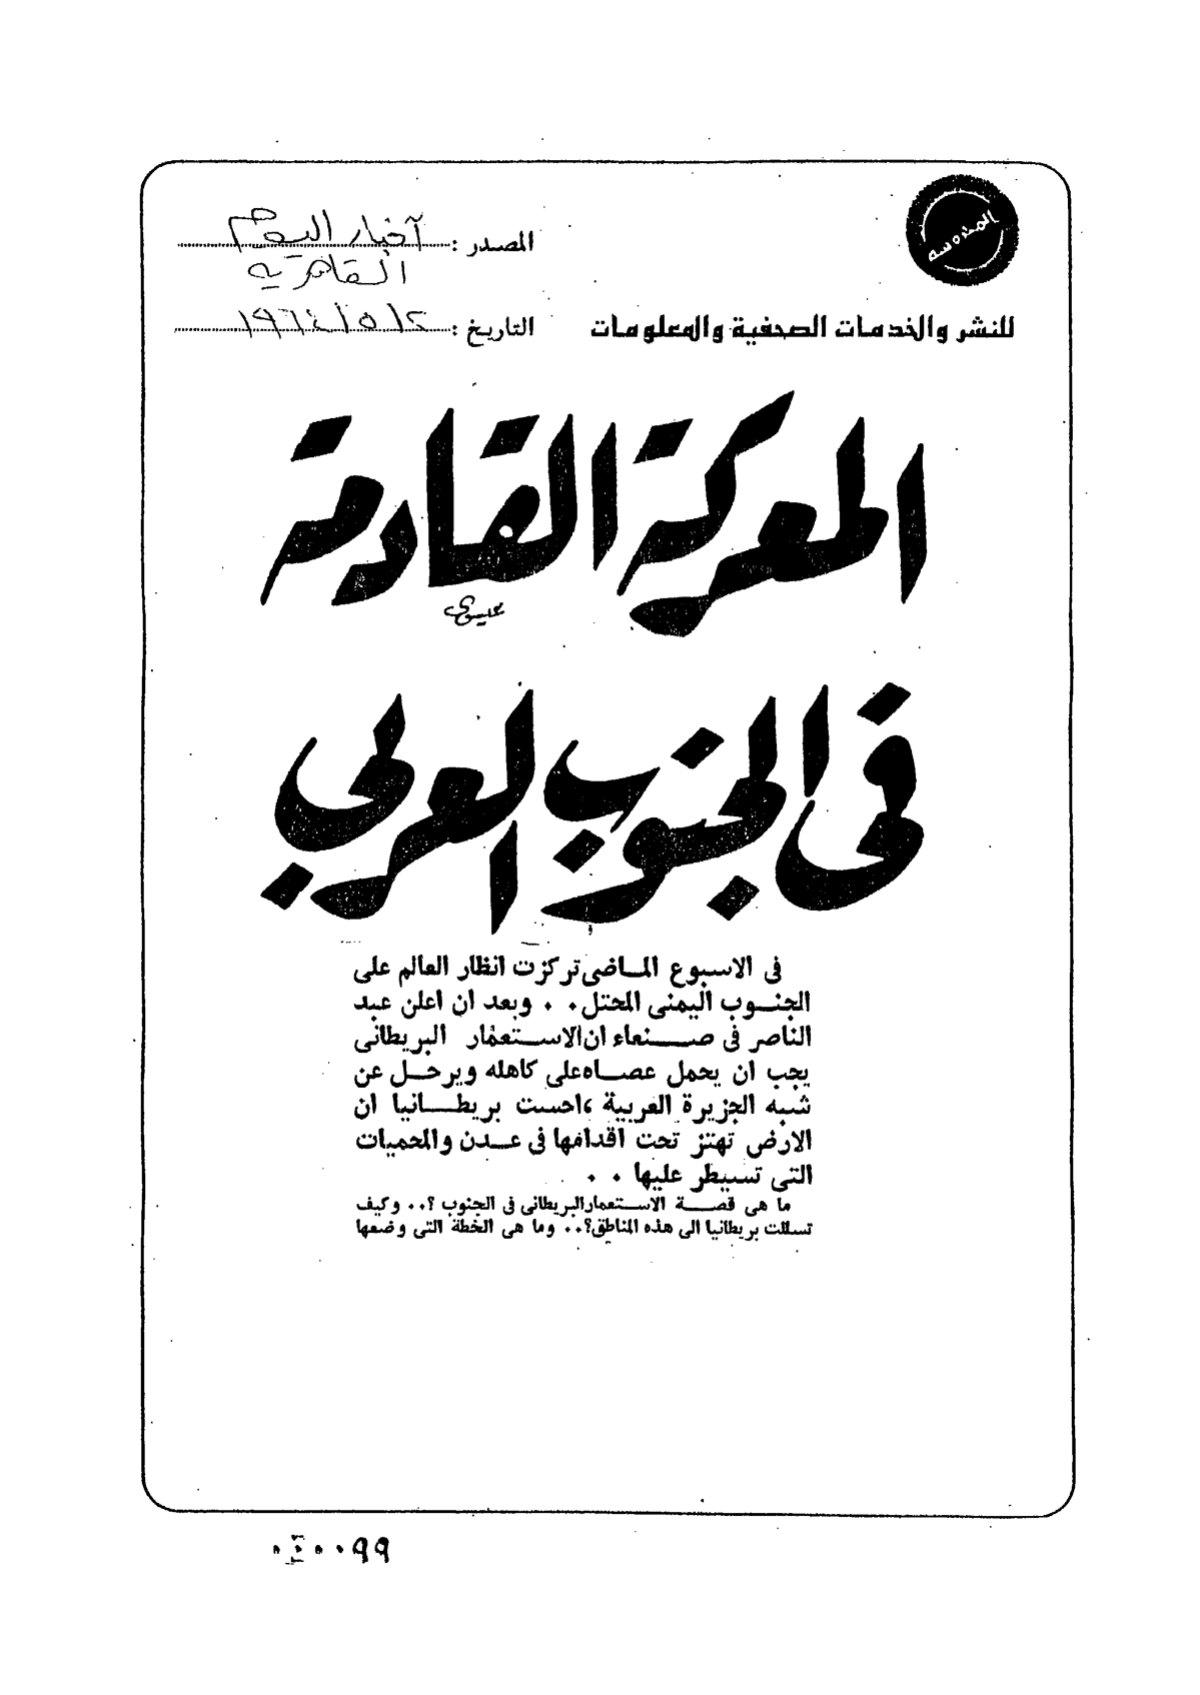 المصدر : آخبار اليوم
القاهرية
للنشر والخدمات الصحفية والمعلومات
التاريخ : ١٩٦٤/٥/٢
المعركة القادمة
فى الجنوب العربى
فى الاسبوع المـاضى تركزت انظار العالم على
الجنـوب اليمنى المحتل٠٠ وبعد ان اعلن عبد
الناصر فى صـــنعاء ان الاســتعمار البريطانى
يجب ان يحمل عصـاه على كاهله ويرحـل عن
شبه الجزيرة العربية ،احست بريطــانيا ان
الارض تهتز تحت اقدامها فى عـدن والمحميات
التى تسيطر عليها ٠٠
ما هى قصــة الاستعمار البريطانى فى الجنوب ؟٠٠ وكيف
تسللت بريطانيا الى هذه المناطق؟٠٠ وما هى الخطة التى وضعها